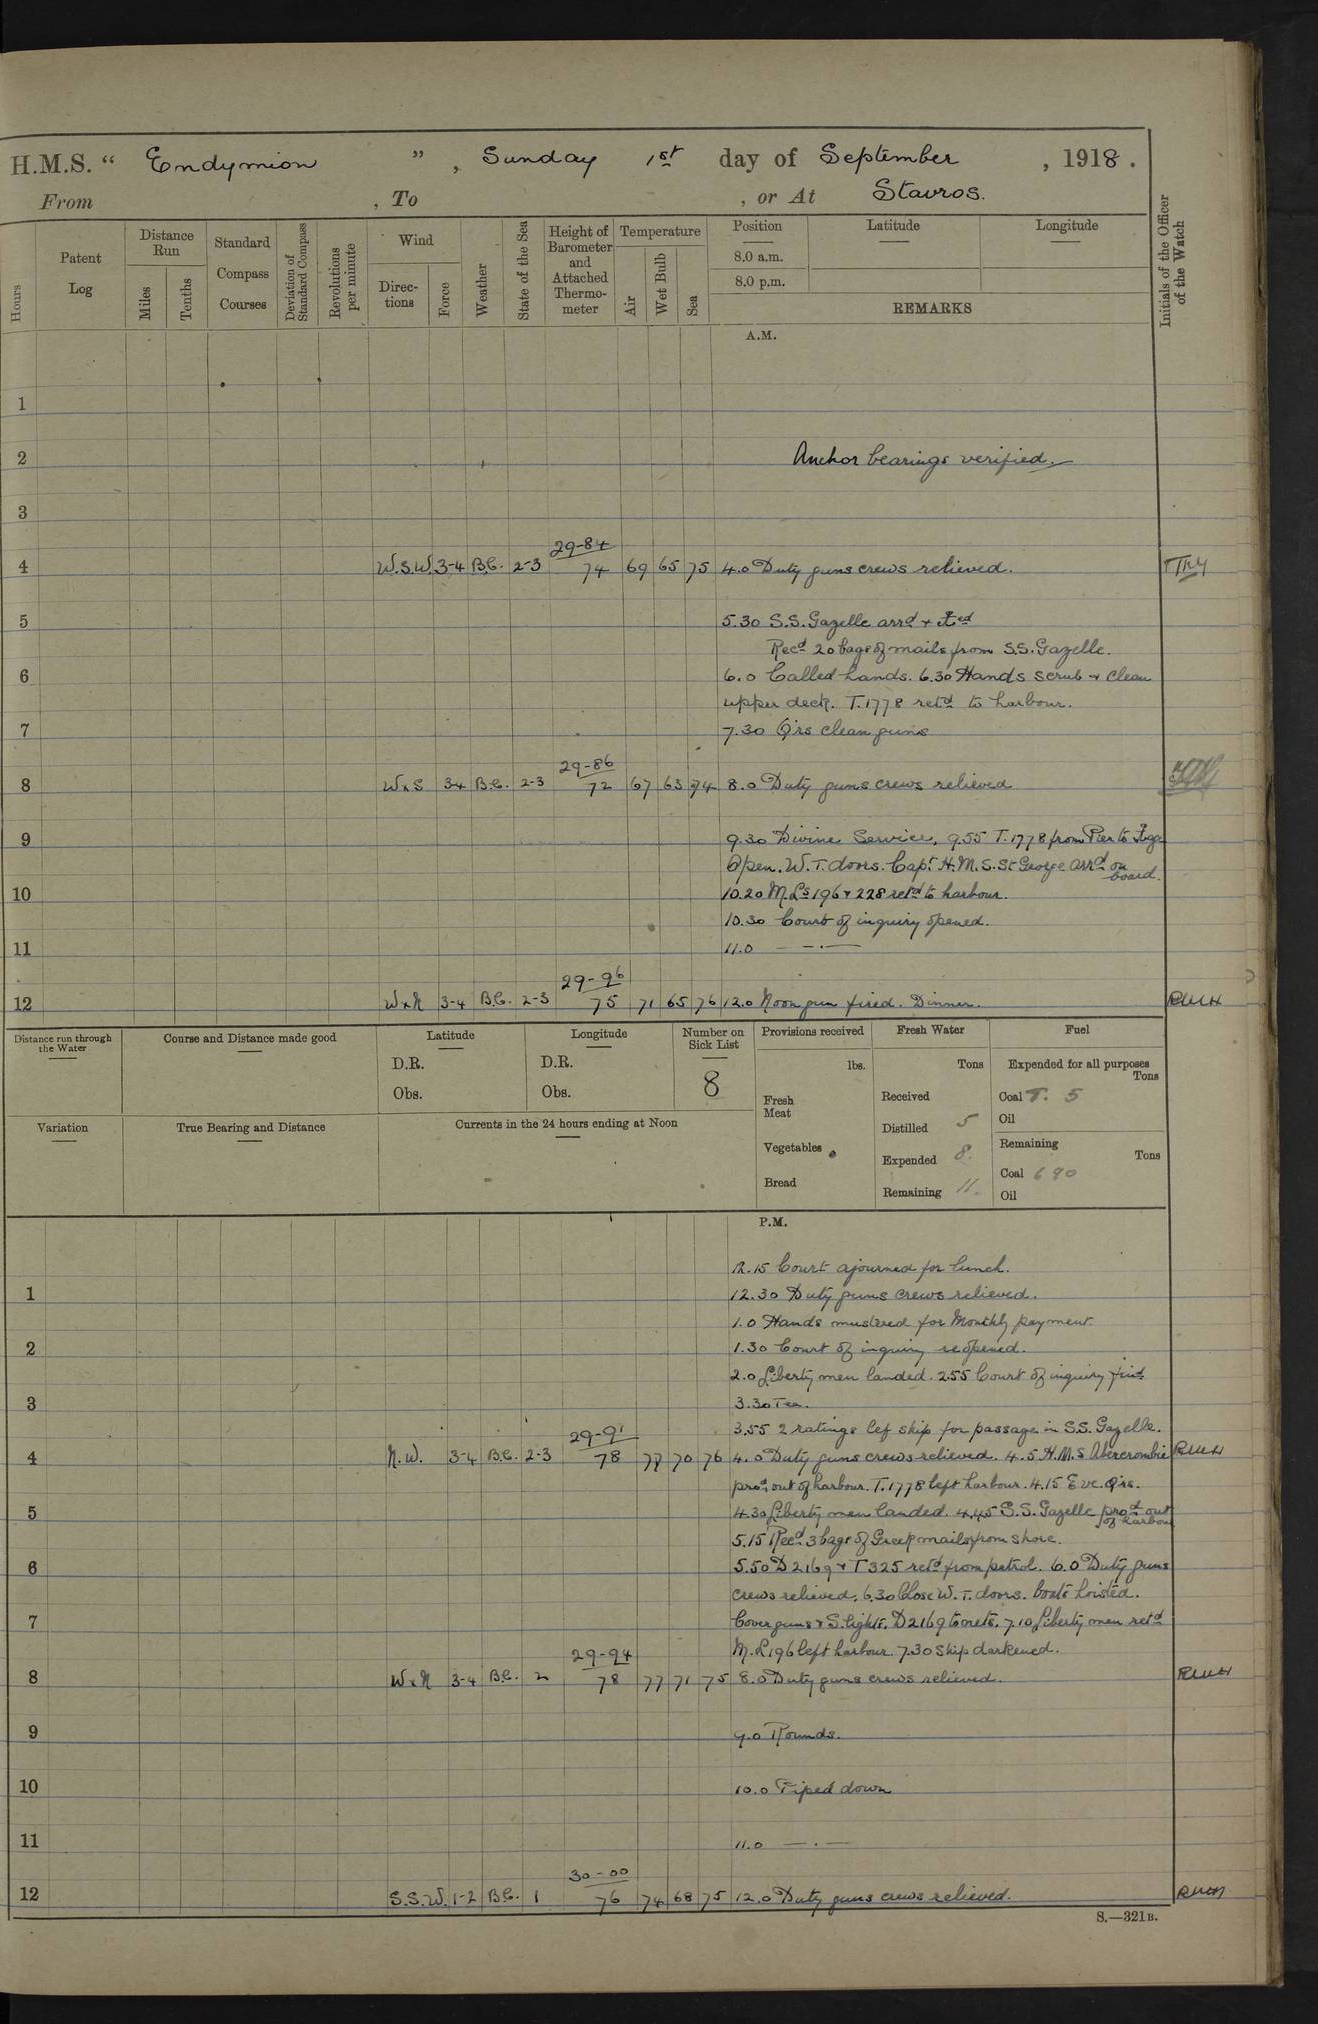 H.M.S. “ Endymion ” , Sunday 1st day of September , 1918 .
From , To , or At Stavros.
Hours
Patent Log
Distance Run
Miles
Tenths
Standard Compass Courses
Deviation of Standard Compass
Revolutions per minute
Wind
Directions
Force
Weather
State of the Sea
Height of Barometer and Attached Thermometer
Temperature
Air
Wet Bulb
Sea
Position
8.0 a.m.
8.0 p.m.
Latitude
Longitude
REMARKS
Initials of the Officer of the Watch
A.M.
1
2 Anchor bearings verified.
3
29-84
4 W.S.W. 3-4 B.C. 2-3 74 69 65 75 4.0 Duty guns crews relieved.
5 5.30 S.S. Gazelle arrd +
Recd 20 bags of mails from S.S. Gazelle.
6 6.0 Called hands. 6.30 Hands scrub + clean
upper deck. T.1778 retd to harbour.
7 7.30 Qrs clean guns
29-86
8 WxS 3-4 B.C. 2-3 72 67 63 74 8.0 Duty guns crews relieved
9 9.30 Divine Service, 9.55 T.1778 from Pier to
Open. W.T. doors. Capt. H.M.S. St George arrd on board.
10 10.20 M.Ls 196 + 228 retd to harbour.
10.30 Court of inquiry opened.
11 11.0 — . —
29-96
12 WxN 3-4 B.C. 2-3 75 71 65 76 12.0 Noon gun fired. Dinner. RWH
Distance run through the Water
Course and Distance made good
Latitude
D.R.
Obs.
Longitude
D.R.
Obs.
Number on Sick List
8
Provisions received
lbs.
Fresh Meat
Vegetables
Bread
Fresh Water
Tons
Received
Distilled 5
Expended 8.
Remaining 11.
Fuel
Expended for all purposes
Tons
Coal T. 5
Oil
Remaining
Tons
Coal 690
Oil
Variation
True Bearing and Distance
Currents in the 24 hours ending at Noon
P.M.
12.15 Court ajourned for lunch.
1 12.30 Duty guns crews relieved.
1.0 Hands mustered for Monthly payment.
2 1.30 Court of inquiry reopened.
2.0 Liberty men landed. 2.55 Court of inquiry find
3 3.30 Tea.
3.55 2 ratings lef ship for passage in S.S. Gazelle.
29-91
4 N.W. 3-4 B.C. 2-3 78 77 70 76 4.0 Duty guns crews relieved. 4.5 H.M.S Abercrombie RWH
procd out of harbour. T.1778 left harbour. 4.15 Eve. Qrs.
5 4.30 Liberty men landed. 4.45 S.S. Gazelle procd out of harbour
5.15 Recd 3 bags of Greek mails from shore.
6 5.50 D2169 + T325 retd from patrol. 6.0 Duty guns
crews relieved. 6.30 Close W.T. doors. boats hoisted.
7 Cover guns + S. lights. D2169 to nets. 7.10 Liberty men retd
M.L196 left harbour. 7.30 Ship darkened.
29-94
8 WxN 3-4 B.C. 2 78 77 71 75 8.0 Duty guns crews relieved. RWH
9 9.0 Rounds.
10 10.0 Piped down
11 11.0 — . —
30-00
12 S.S.W. 1-2 B.C. 1 76 74 68 75 12.0 Duty guns crews relieved. RWH
S.—321B.